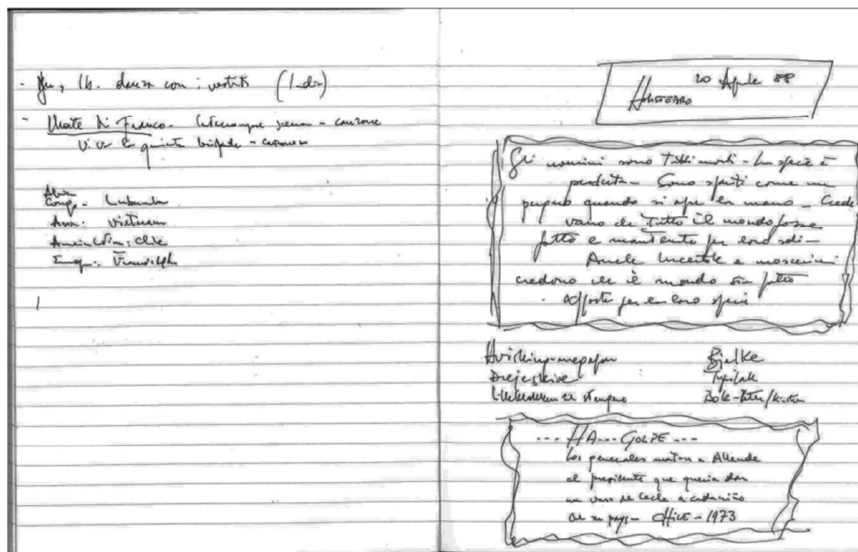 danza con i vestiti (India)
Morte di Franco - scena - canzone
Viva la quinta brigada - canzone
Congo - Lumumba
Asia: Vietnam
America Latina: Cile
Europa:
20 Aprile 88
HOLSTEBRO
Gli uomini sono tutti morti - La specie è
perduta - Sono spariti come un
pugno quando si apre la mano - Crede
vano che tutto il mondo fosse
fatto e mantenuto per loro soli -
Anche lucertole e moscerini
credono che il mondo sia fatto
apposta per la loro specie
Bjelke
Drejeskive Typilak
--- HA --- GOLPE ---
Los generales matan a Allende
el presidente que queria dar
un vaso de leche a cada niño
de su pays - CHILE - 1973